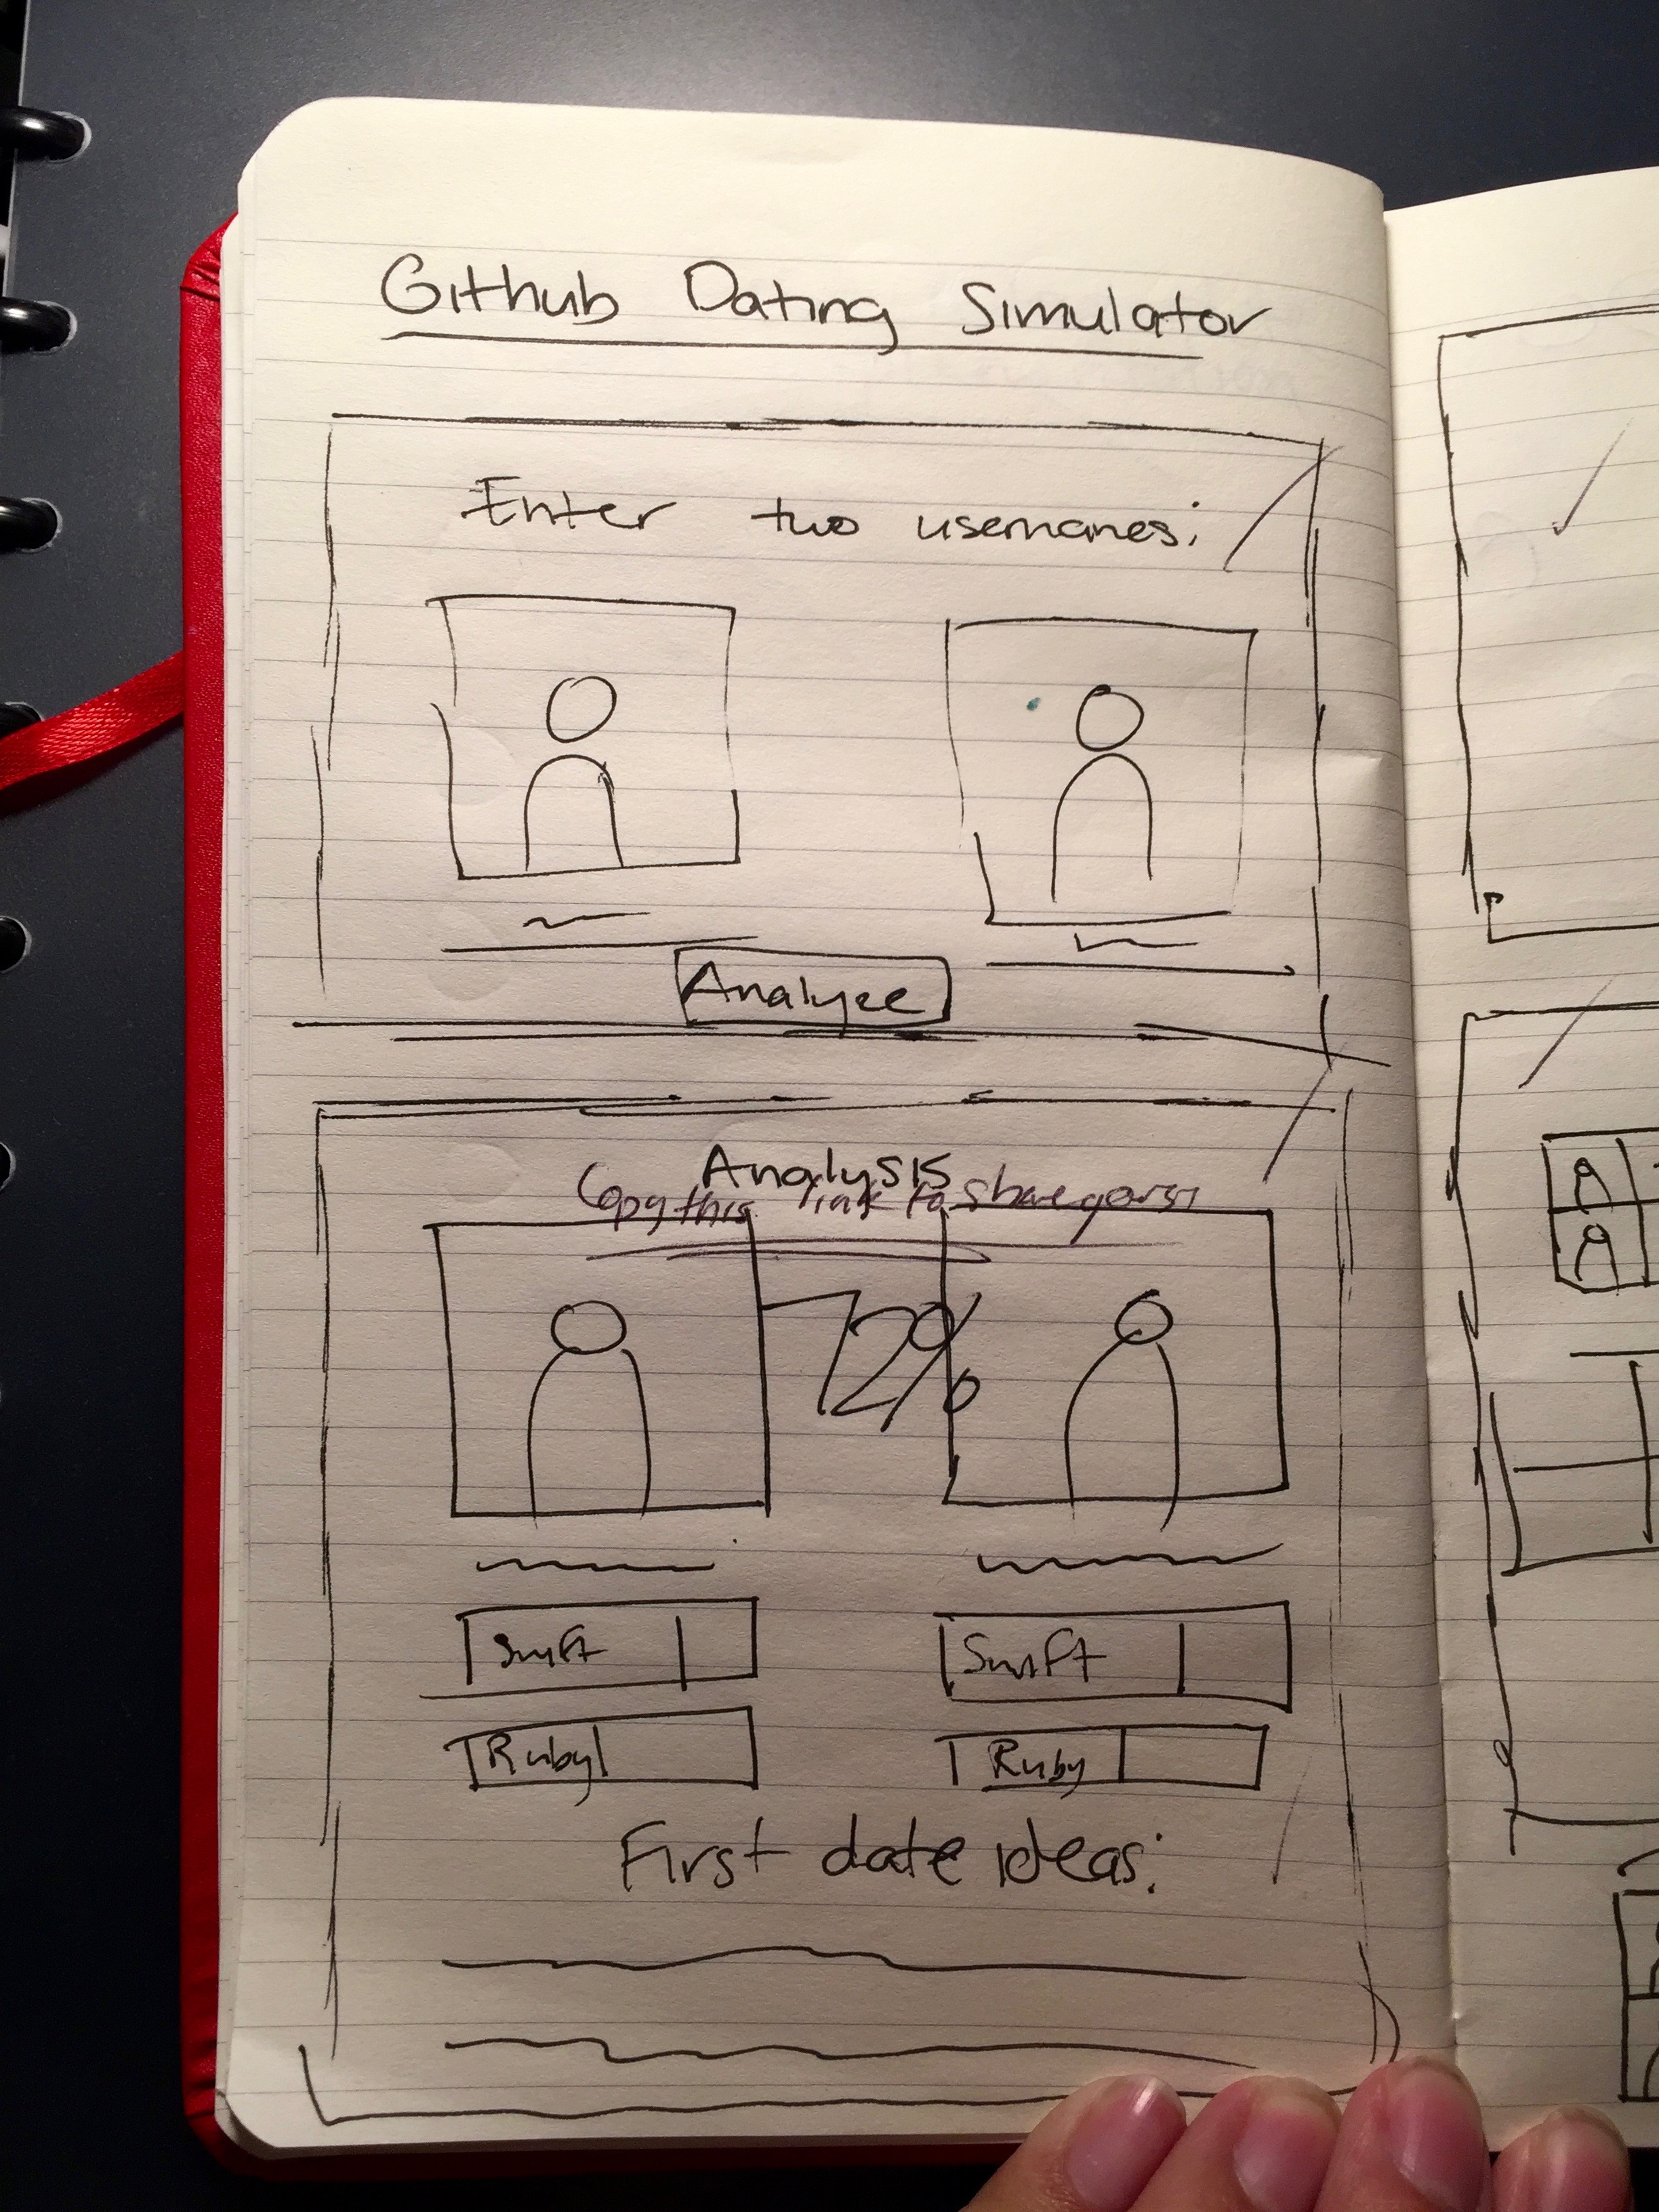 Github Dating Simulator
Enter two usernames:
Analyze
Analysis
Copy this link to share yours:
72%
Swift Swift
Ruby Ruby
First date ideas: